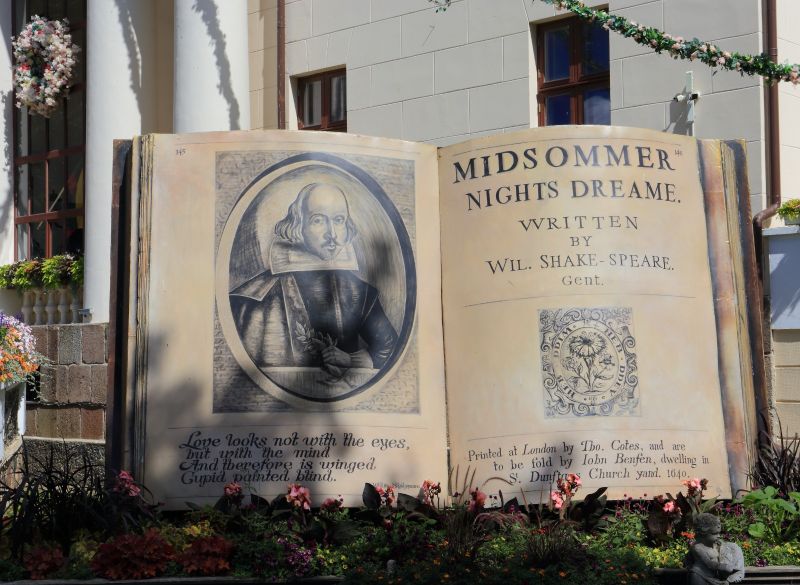 145
Love looks not with the eyes,
but with the mind
And therefore is winged
Cupid painted blind.
MIDSOMMER
NIGHTS DREAME.
WRITTEN
BY
WIL. SHAKE-SPEARE.
Gent.
Printed at London by Tho. Cotes, and are
to be sold by Iohn Benson, dwelling in
S. Dunstans Church yard. 1640.